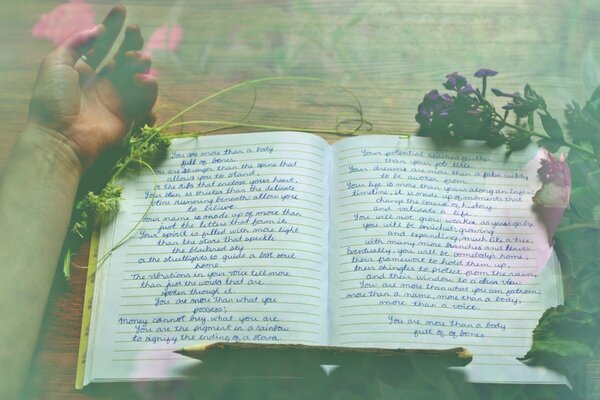 You are more than a body
full of bones.
You are stronger than the spine that
allows you to stand.
Or the ribs that enclose your heart.
You is thicker than the delicate
veins running beneath allow you
to believe.
Your name is made up of more than
just the letters that form it.
Your spirit is filled with more light
than the stars that speckle
the blackened sky
or the streetlights to guide a lost soul
home.
The vibrations in your voice tell more
than just the words that are
spoken through it.
You are more than what you
possess;
Money cannot buy what you are.
You are the pigment in a rainbow
to signify the ending of a storm.
Your potential reaches further
than your fall.
Your dreams are more than a false reality
to be sold.
Your life is more than years along an
timeline, it is made up of moments that
change the course of history
and validate a life.
You will not grow weaker as years go by,
you will be enriched, growing
and expanding, much like a tree,
with many more branches and leaves.
Eventually, you will be somebody's home,
their framework to hold them up,
their shingles to protect from the rain,
and their window to a clear day.
You are more than what you can fathom,
more than a name, more than a body,
more than a voice.
You are more than a body
full of of bones.